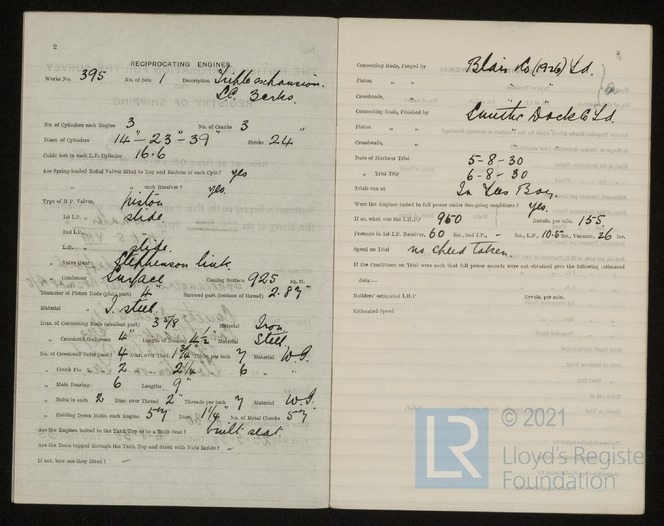 2
RECIPROCATING ENGINES.
Works No. 395 No. of Sets 1 Description Triple expansion.
No. of Cylinders each Engine 3 No. of Cranks 3
Diars. of Cylinders 14" – 23" – 39" Stroke 24"
Cubic feet in each L.P. Cylinder 16.6
Are Spring-loaded Relief Valves fitted to Top and Bottom of each Cylr.? yes
" " each Receiver? yes.
Type of H.P. Valves, piston
1st I.P. " slide.
2nd I.P. "
L.P. " slide.
" Valve Gear Stephenson link.
" Condenser Surface Cooling Surface 925 sq. ft.
Diameter of Piston Rods (plain part) 4 Screwed part (bottom of thread) 2.87"
Material S. steel.
Diar. of Connecting Rods (smallest part) 3 5/8 Material Iron
" Crosshead Gudgeons 4" Length of Bearing 4½" Material Steel.
No. of Crosshead Bolts (each) 4 Diar. over Thrd. 1¾" Thrds. per inch 7 Material W.I.
" Crank Pin " 2 " 2¼" " 6 " "
" Main Bearings 6 Lengths 9"
" Bolts in each 2 Diar. over Thread 2" Threads per inch 7 Material W.I.
" Holding Down Bolts, each Engine 57 Diar. 1¼" No. of Metal Chocks 57
Are the Engines bolted to the Tank Top or to a Built Seat? built seat
Are the Bolts tapped through the Tank Top and fitted with Nuts Inside? –
If not, how are they fitted? –
3
Connecting Rods, Forged by Blair Co (1926) Ld.
Piston " "
Crossheads, "
Connecting Rods, Finished by Smiths Dock Co Ld.
Piston " "
Crossheads, "
Date of Harbour Trial 5-8-30
" Trial Trip 6-8-30
Trials run at In Tees Bay.
Were the Engines tested to full power under Sea-going conditions? yes.
If so, what was the I.H.P.? 950 Revols. per min. 155
Pressure in 1st I.P. Receiver, 60 lbs., 2nd I.P., - lbs., L.P., 10.5 lbs., Vacuum, 26 ins.
Speed on Trial no speed taken.
If the Conditions on Trial were such that full power records were not obtained give the following estimated
data:—
Builders' estimated I.H.P. Revols. per min.
Estimated Speed
© 2021
LR
Lloyd's Register
Foundation